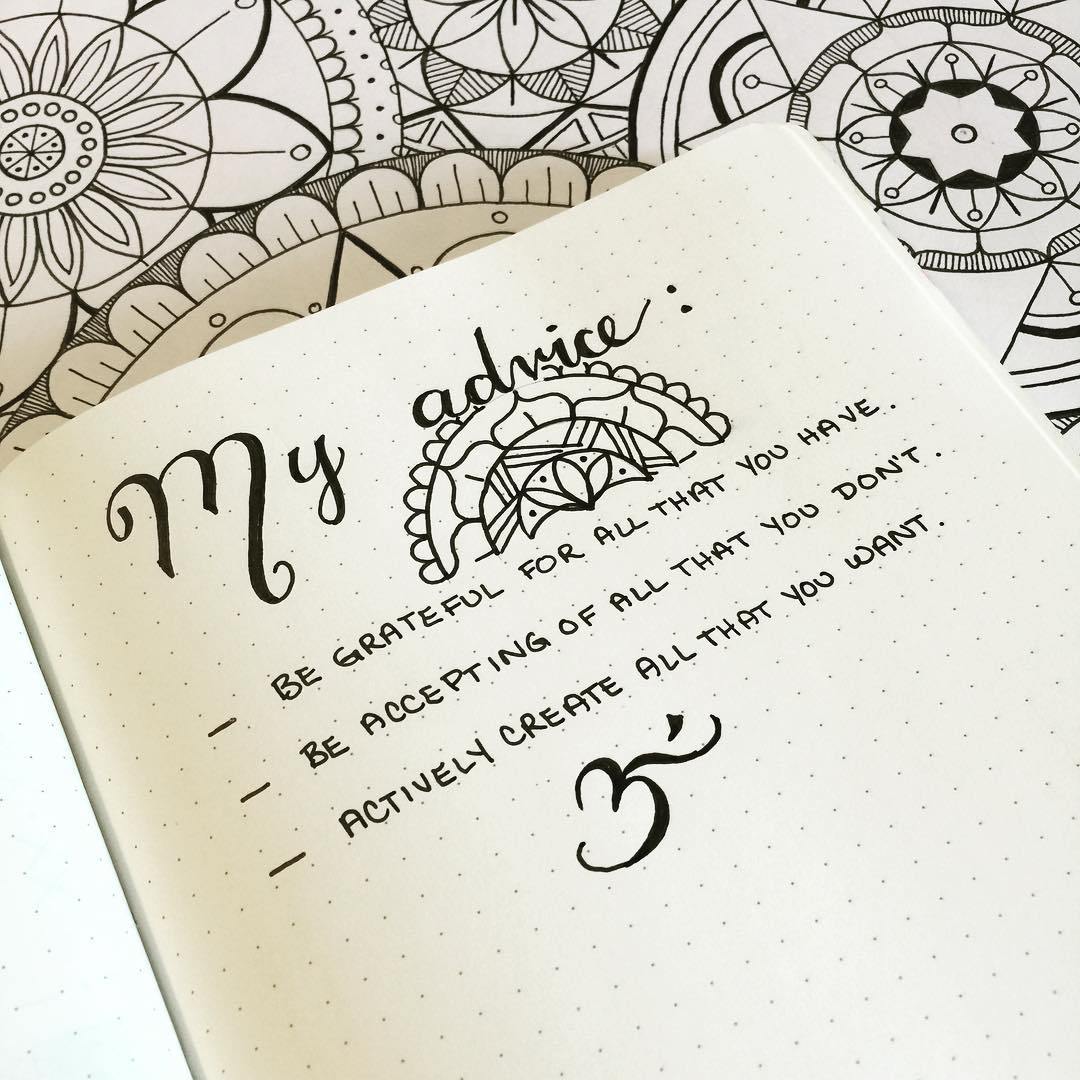 My advice:
- BE GRATEFUL FOR ALL THAT YOU HAVE.
- BE ACCEPTING OF ALL THAT YOU DON'T.
- ACTIVELY CREATE ALL THAT YOU WANT.
ॐ